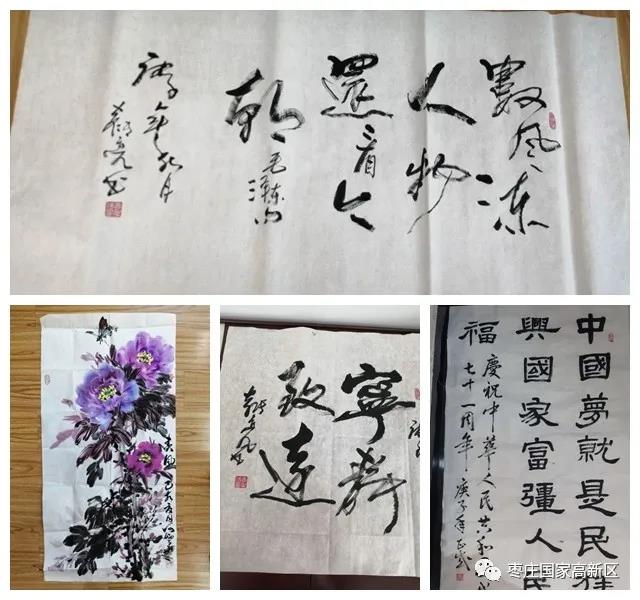 數风流
人物
還看今
朝
毛澤东句
庚子年秋月
寧静
致遠
中國夢就是民族
興國家富彊人民
福
慶祝中華人民共和
七十一周年
庚子年
枣庄国家高新区